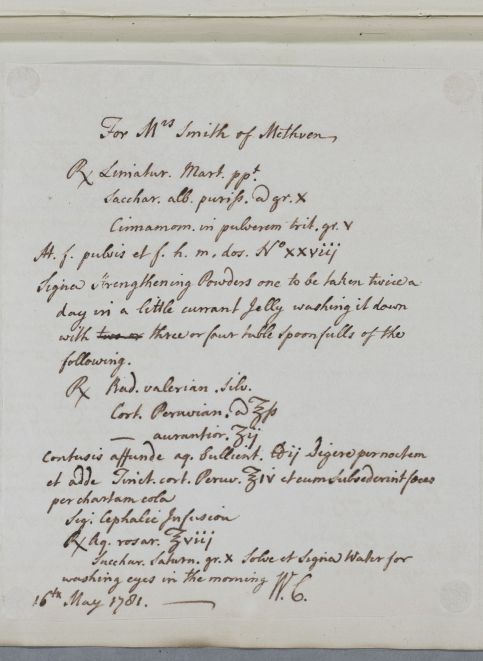 For Mrs Smith of Methven,
℞ Limatur. Mart. ppt.
Sacchar. alb. puriss. a gr. X
Cinnamom. in pulverem trit. gr. V
M. f. pulvis et f. h. m. dos. No xxviij
Signa Strengthening Powders one to be taken twice a
day in a little currant Jelly washing it down
with two or three or four table spoonfulls of the
following.
℞ Rad. valerian. Silv.
Cort. Peruvian. a ℥ß
— aurantior. ʒij
Contusis affunde aq. bullient. ℔ij Digere per noctem
et adde Tinct. cort. Peruv. ℥iv et cum subsederint fæces
per chartam cola
Sig. Cephalic Infusion
℞ Aq. rosar. ℥viij
Sacchar. Saturn. gr. X Solve et Signa Water for
washing eyes in the morning W. C.
16th May 1781.